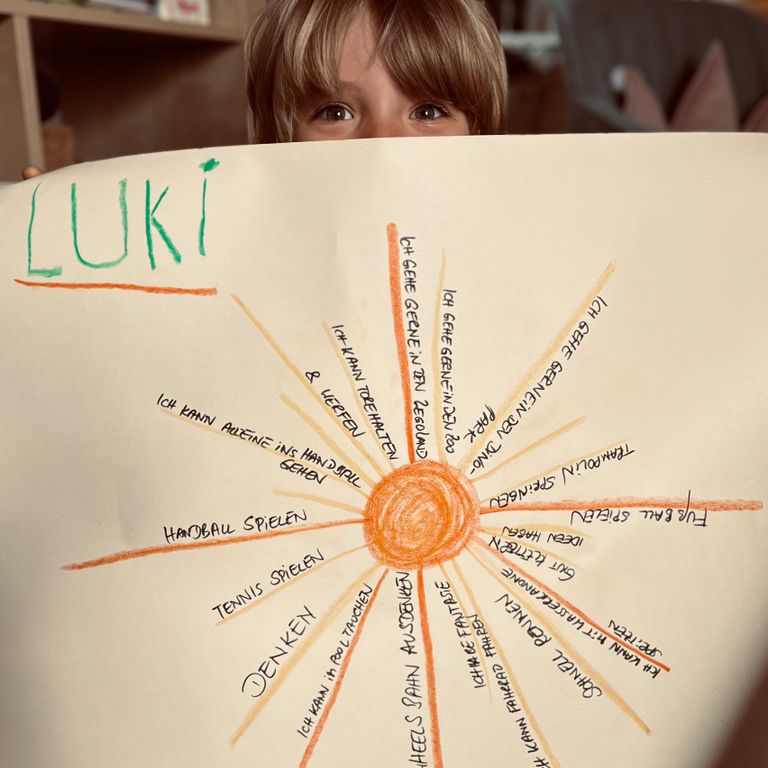 LUKI
ICH GEHE GERNE IN DEN LEGOLAND
ICH GEHE GERNE IN DEN ZOO
ICH GEHE GERNE IN DEN DINO-
PARK
TRAMPOLIN SPRINGEN
FUßBALL SPIELEN
IDEEN HABEN
GUT KLETTERN
ICH KANN MIT WASSERKANONE
SPRITZEN
SCHNELL RENNEN
KANN FAHRRAD FAHREN
ICH HABE FANTASIE
HEELS BAHN AUSDENKEN
ICH KANN IM POOL TAUCHEN
DENKEN
TENNIS SPIELEN
HANDBALL SPIELEN
ICH KANN ALLEINE INS HANDBALL
GEHEN
ICH KANN TORE HALTEN
& WERFEN